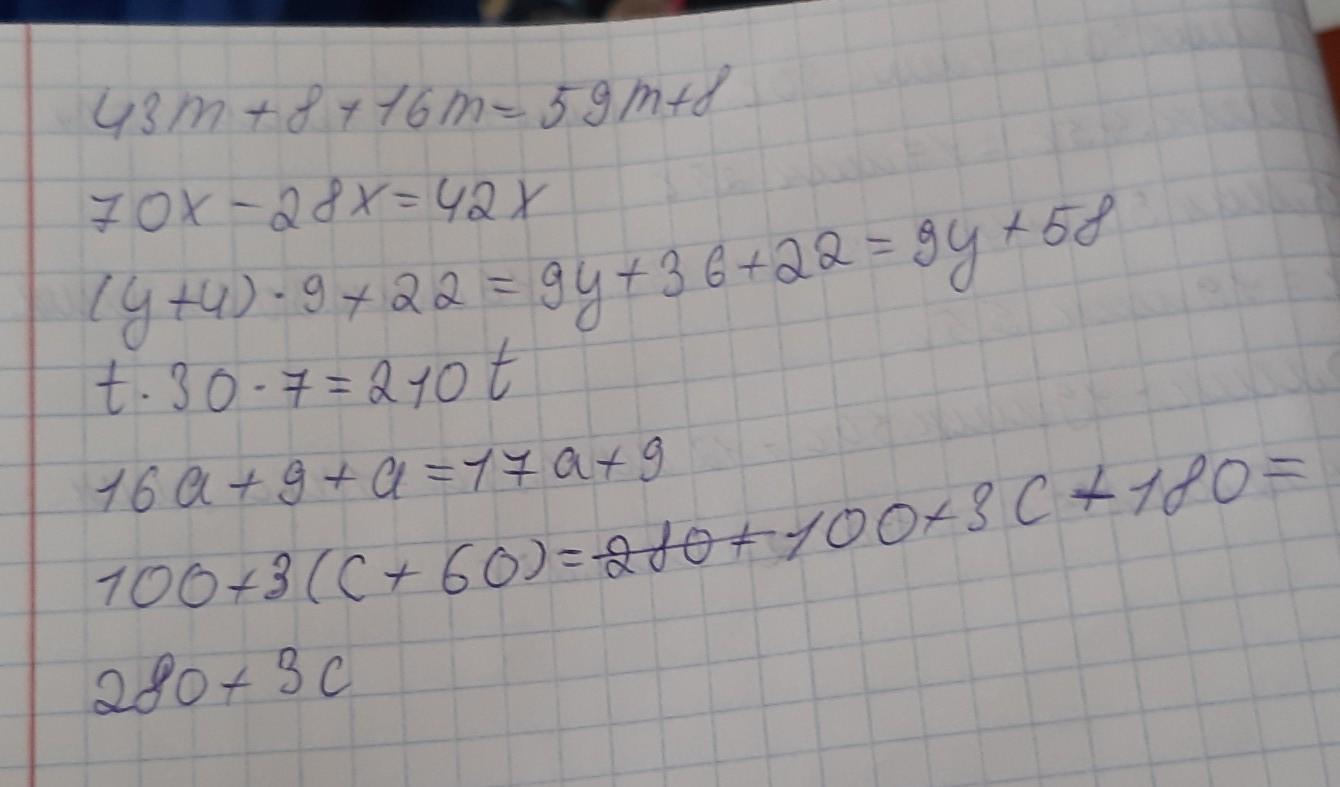 43m + 8 + 16m = 59m + 8
70x - 28x = 42x
(y + 4) · 9 + 22 = 9y + 36 + 22 = 9y + 58
t · 30 · 7 = 210t
16a + 9 + a = 17a + 9
100 + 3(c + 60) = 280 + 100 + 3c + 180 =
280 + 3c